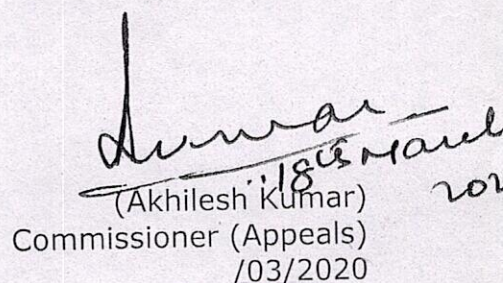 Kumar
18th March
(Akhilesh Kumar)
Commissioner (Appeals)
/03/2020